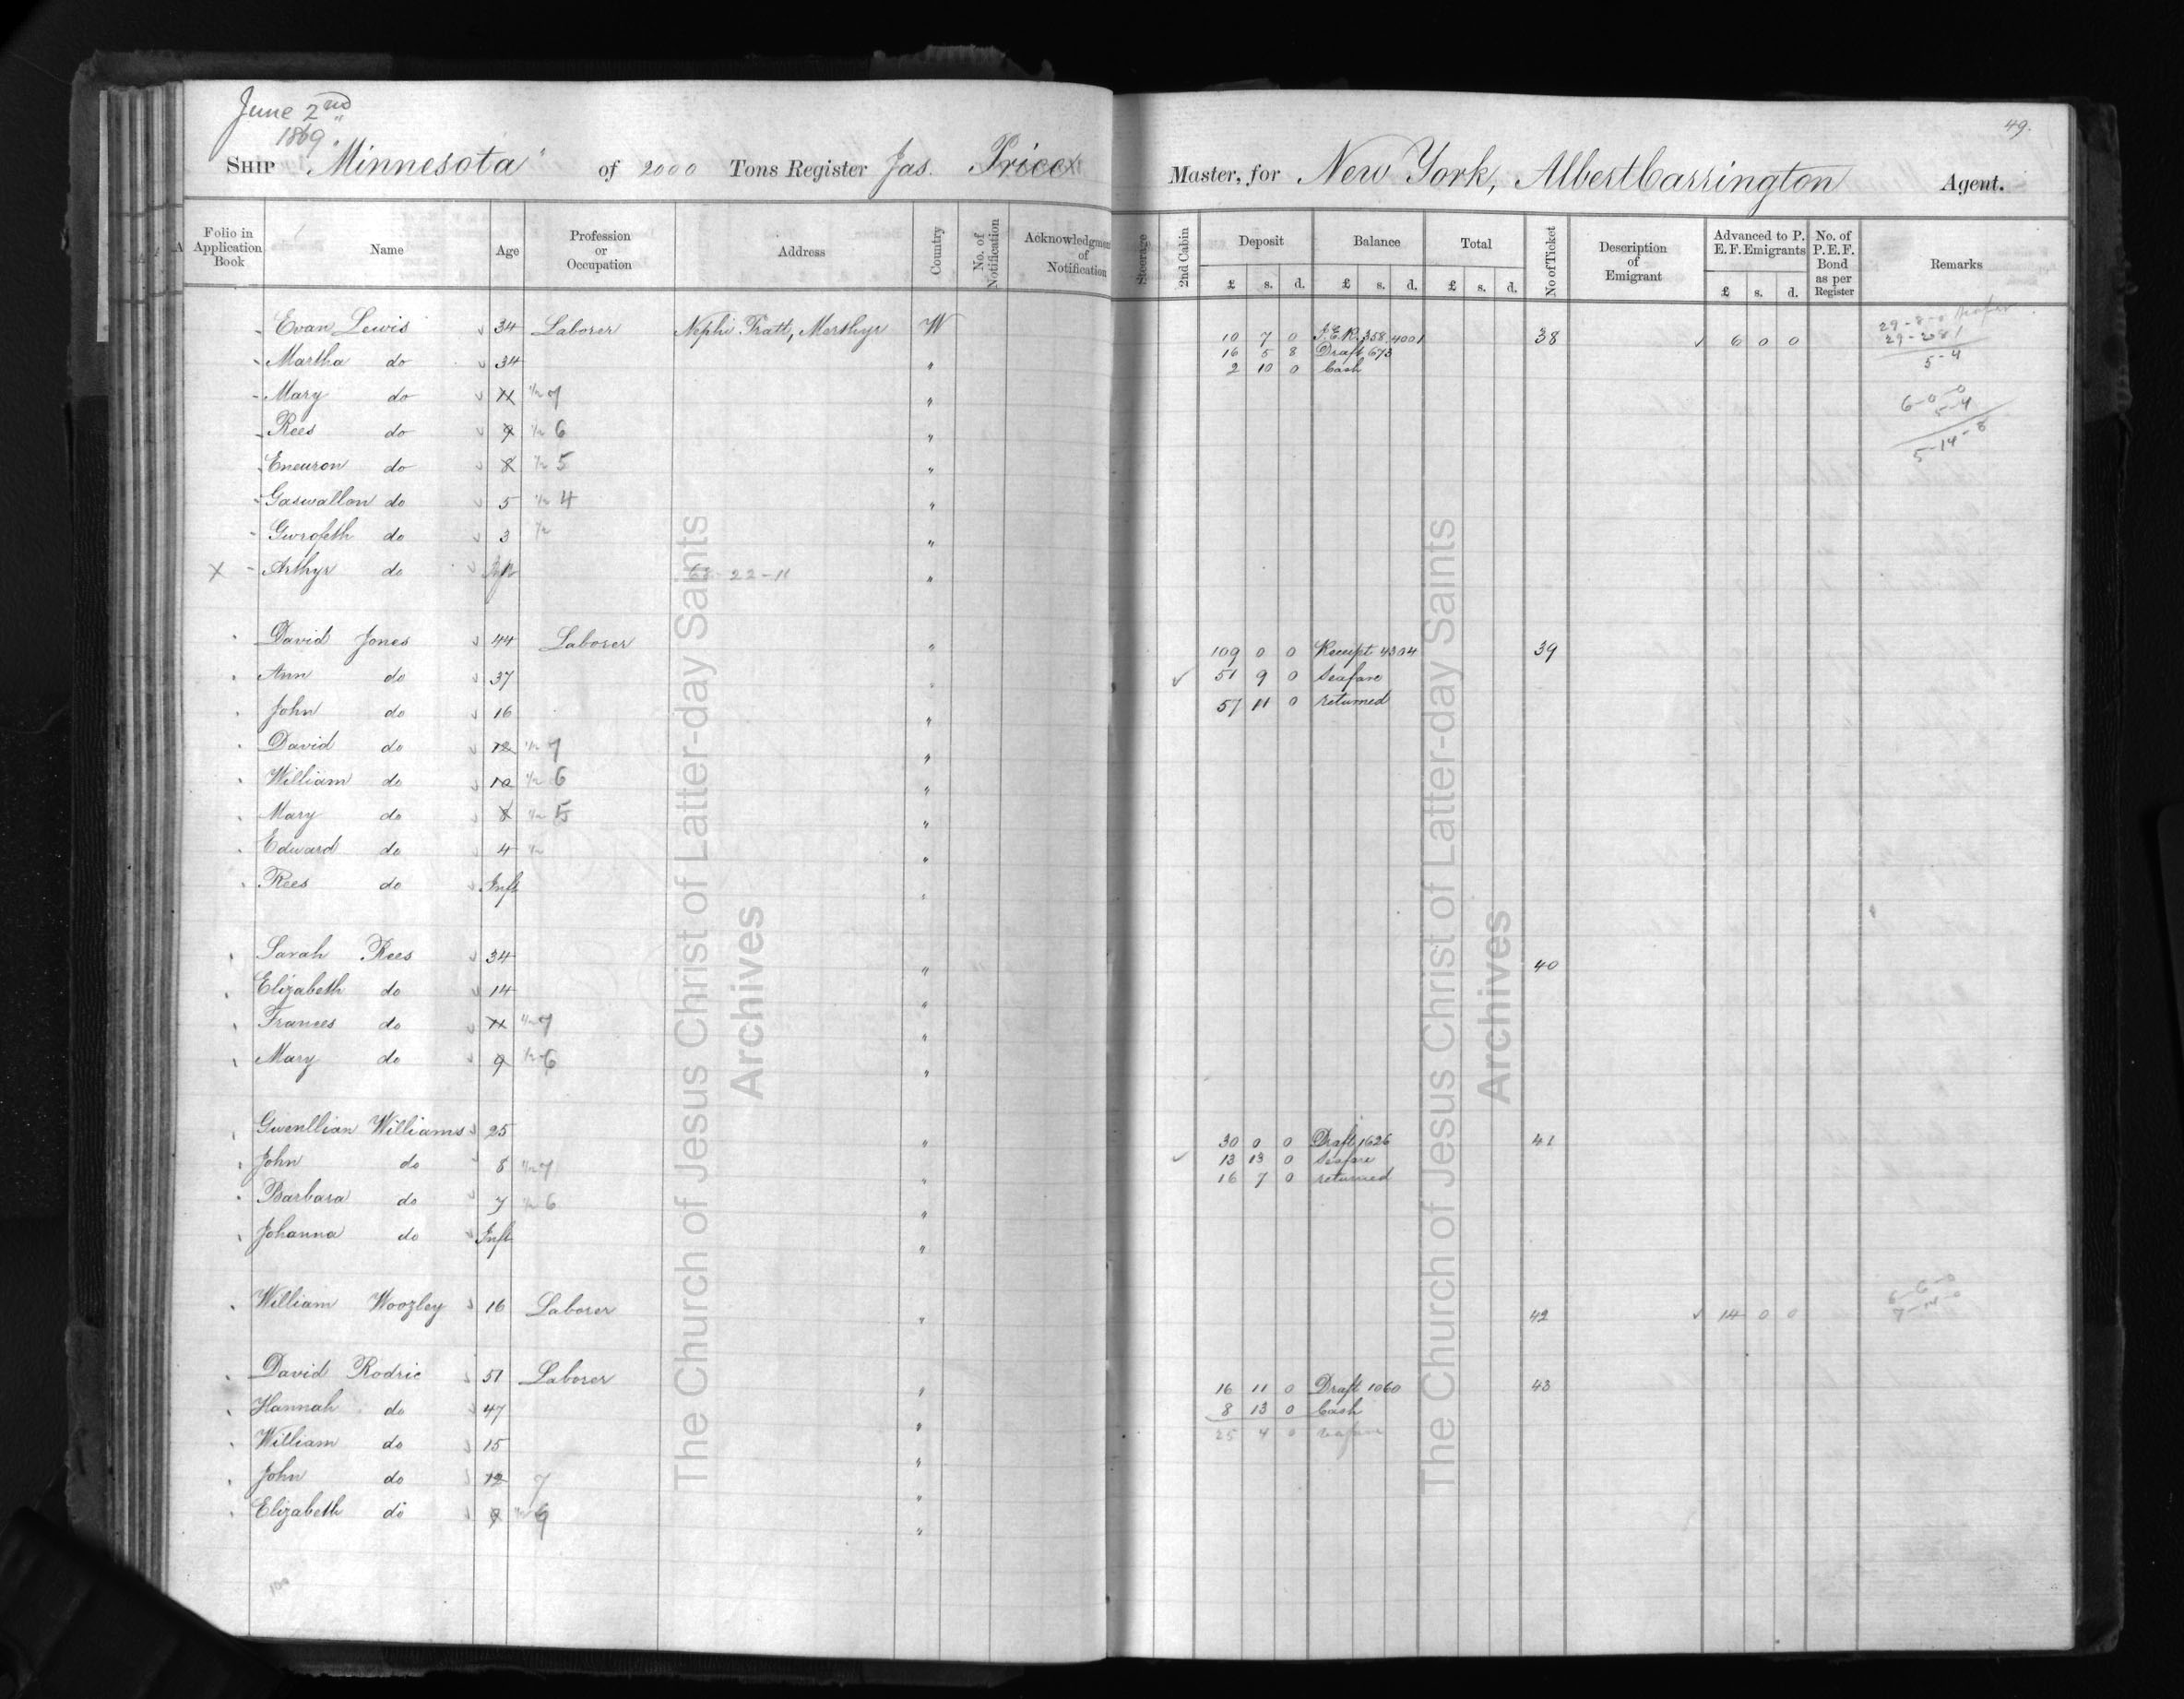 June 2nd
1869.
49.
SHIP "Minnesota" of 2000 Tons Register Jas. Price Master, for New York, Albert Carrington Agent.
Folio in Application Book Name Age Profession or Occupation Address Country No. of Notification Acknowledgment of Notification Steerage 2nd Cabin Deposit Balance Total No of Ticket Description of Emigrant Advanced to P. E. F. Emigrants No. of P. E. F. Bond as per Register Remarks
£ s. d. £ s. d. £ s. d. £ s. d.
Evan Lewis 34 Laborer Nephi Pratt, Merthyr W 10 7 0 358 4001 38 6 0 0 29-8-0
16 5 8 Draft 673 5-4
Martha do 34 " 2 10 0 Cash
Mary do 11 1/2 7 " 6-0-0
5-4
Rees do 9 1/2 6 " 5-14-8
Eneuron do 8 1/2 5 "
Gaswallon do 5 1/2 4 "
Gwrofeth do 3 1/2 "
X Arthyr do Inft 22-11 "
David Jones 44 Laborer " 109 0 0 Receipt 4304 39
Ann do 37 " 51 9 0 Seafare
John do 16 " 57 11 0 returned
David do 12 1/2 7 "
William do 10 1/2 6 "
Mary do 8 1/2 5 "
Edward do 4 1/2 "
Rees do Inft "
Sarah Rees 34 " 40
Elizabeth do 14 "
Frances do 11 1/2 7 "
Mary do 9 1/2 6 "
Gwenllian Williams 25 " 30 0 0 Draft 1626 41
John do 8 1/2 7 " 13 13 0 Seafare
16 7 0 returned
Barbara do 7 1/2 6 "
Johanna do Inft "
William Woozley 16 Laborer " 42 14 0 0 6-6-0
7-14-0
David Rodric 51 Laborer " 16 11 0 Draft 1060 43
Hannah do 47 " 8 13 0 Cash
William do 15 " 25 4 0 seafare
John do 12 7 "
Elizabeth do 9 1/2 6 "
100
The Church of Jesus Christ of Latter-day Saints
Archives
The Church of Jesus Christ of Latter-day Saints
Archives